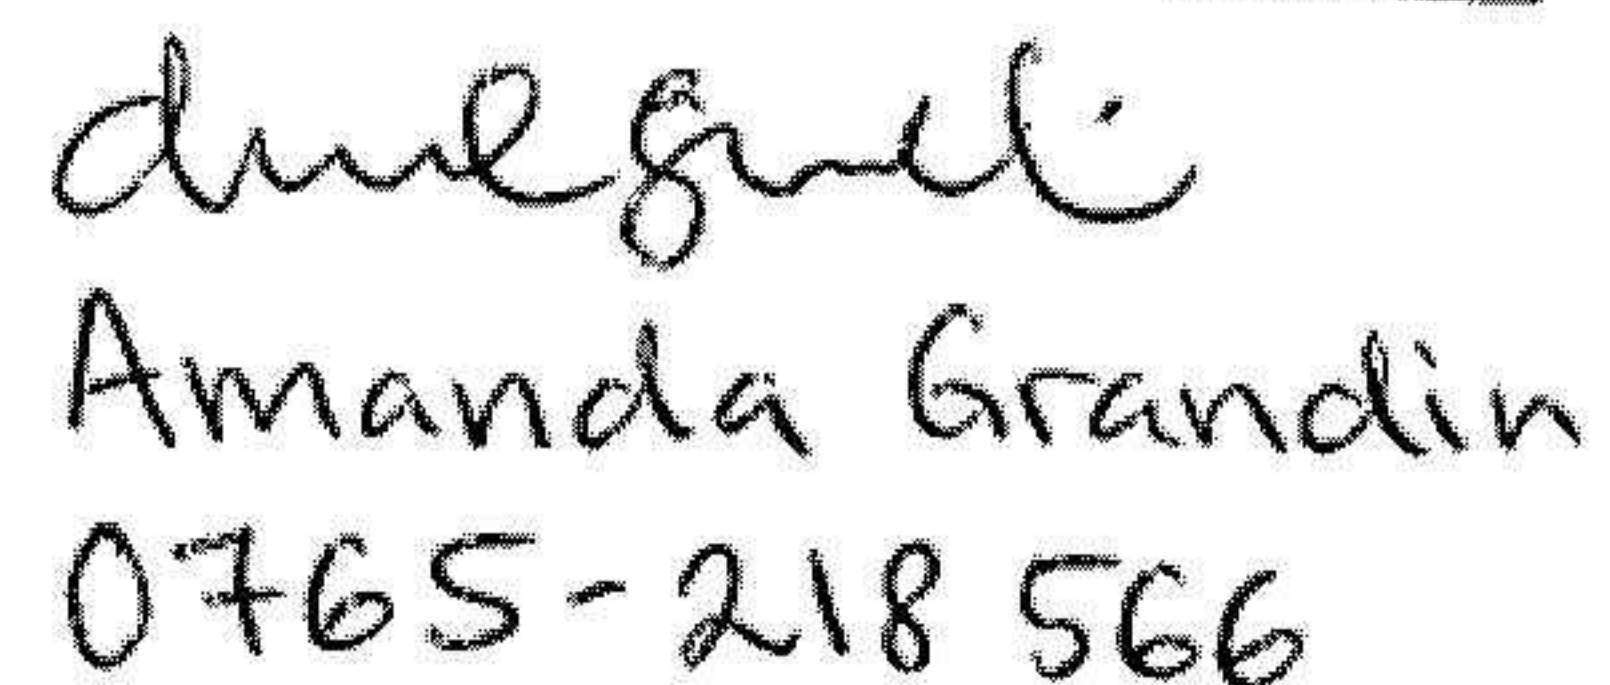 Amanda Grandin
0765-218 566